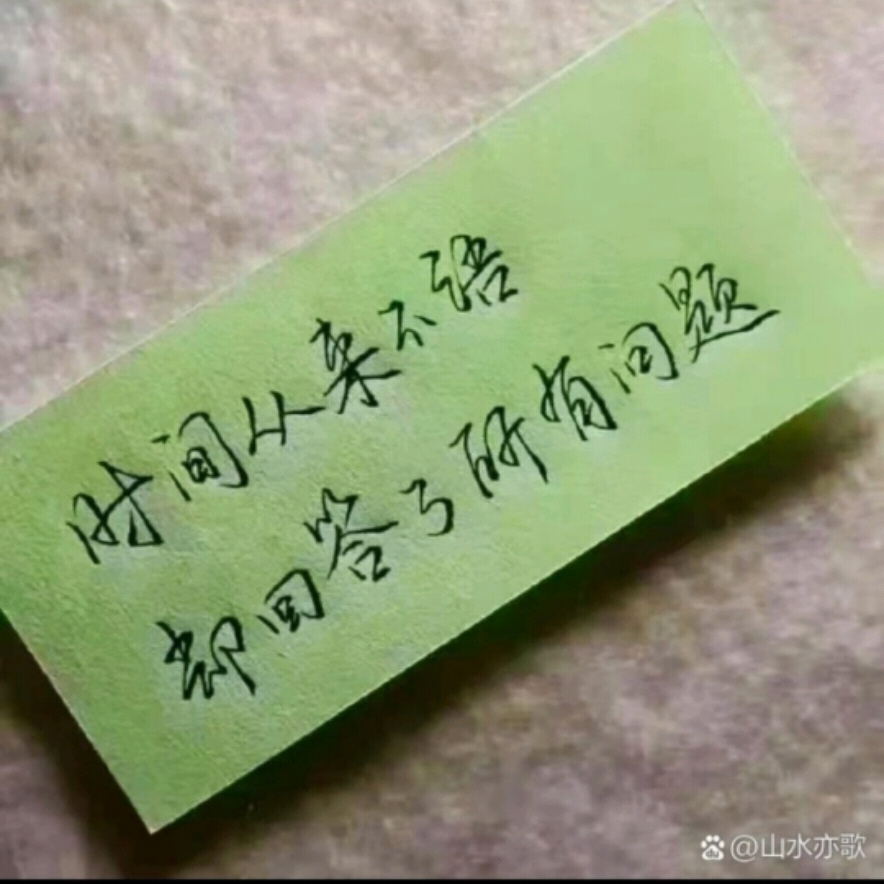 时间从来不语
却回答了所有问题
@山水亦歌